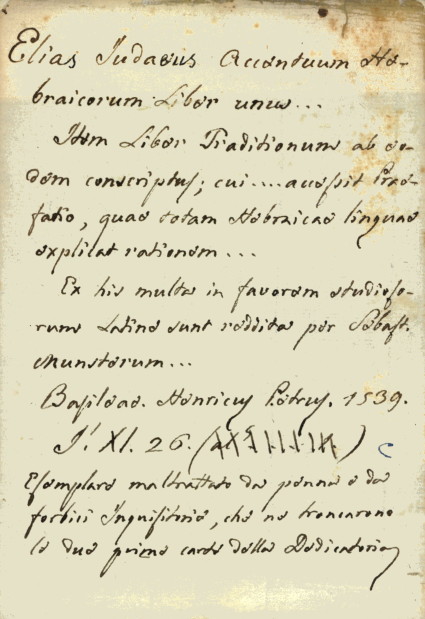 Elias Judaeus Accentuum He-
braicorum Liber unus...
Item Liber Traditionum ab eo-
dem conscriptus; cui.... accessit Prae-
fatio, quae totam Hebraicae linguae
explicat rationem...
Ex his multa in favorem studioso-
rum Latine sunt reddita per Sebast.
Munsterum...
Basileae. Henricus Petrus. 1539.
J! XI. 26. (
)
Esemplare maltrattato da penna e da
forbici Inquisitorie, che ne troncarono
le due prime carte della Dedicatoria